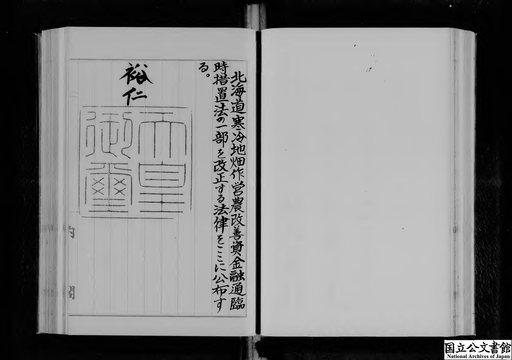 北海道寒冷地畑作営農改善資金融通臨
時措置法の一部を改正する法律をここに公布す
る。
裕仁
天皇
御璽
内閣
国立公文書館
National Archives of Japan